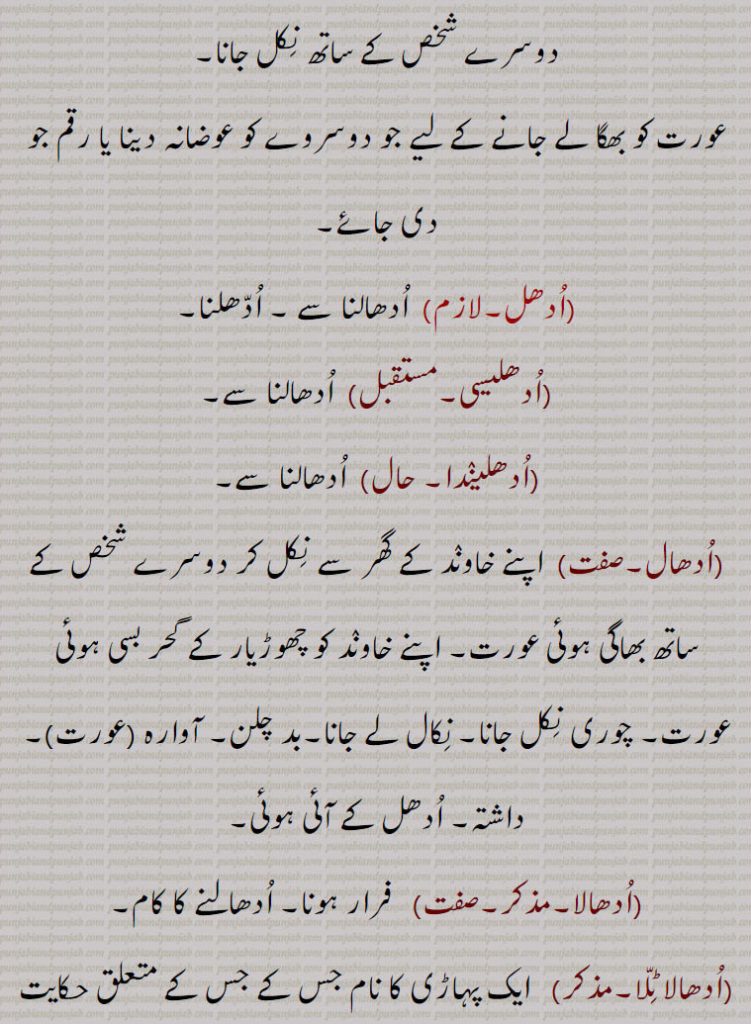 دوسرے شخص کے ساتھ نِکل جانا۔
عورت کو بھگا لے جانے کے لیے جو دوسروے کو عوضانہ دینا یا رقم جو
دی جائے۔
(اُدھل۔لازم) اُدھالنا سے ۔ اُدّھلنا۔
(اُدھلیسی۔مستقبل) اُدھالنا سے۔
(اُدھلیندا۔ حال) اُدھالنا سے۔
(اُدھال۔صفت) اپنے خاوند کے گھر سے نِکل کر دوسرے شخص کے
ساتھ بھاگی ہوئی عورت۔ اپنے خاوند کو چھوڑیار کے گحر بسی ہوئی
عورت۔ چوری نِکل جانا۔ نِکال لے جانا۔بد چلن۔ آوارہ (عورت)۔
داشتہ۔ اُدھل کے آئی ہوئی۔
(اُدھالا۔مذکر۔صفت) فرار ہونا۔ اُدھالنے کا کام۔
(اُدھالا ٹِلّا۔مذکر) ایک پہاڑی کا نام جس کے جس کے متعلق حکایت